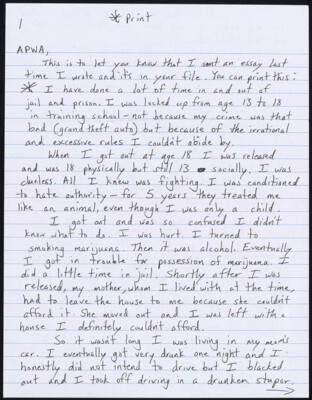 1
* Print
APWA,
This is to let you know that I sent an essay last
time I wrote and its in your file. You can print this:
* I have done a lot of time in and out of
jail and prison. I was locked up from age 13 to 18
in training school - not because my crime was that
bad (grand theft auto) but because of the irrational
and excessive rules I couldn't abide by.
When I got out at age 18 I was released
and was 18 physically but still 13 socially. I was
clueless. All I knew was fighting. I was conditioned
to hate authority - for 5 years they treated me
like an animal, even though I was only a child.
I got out and was so confused I didn't
know what to do. I was hurt. I turned to
smoking marijuana. Then it was alcohol. Eventually
I got in trouble for possession of marijuana. I
did a little time in jail. Shortly after I was
released, my mother, whom I lived with at the time,
had to leave the house to me because she couldn't
afford it. She moved out and I was left with a
house I definitely couldn't afford.
So it wasn't long I was living in my mom's
car. I eventually got very drunk one night and I
honestly did not intend to drive but I blacked
out and I took off driving in a drunken stupor.
→